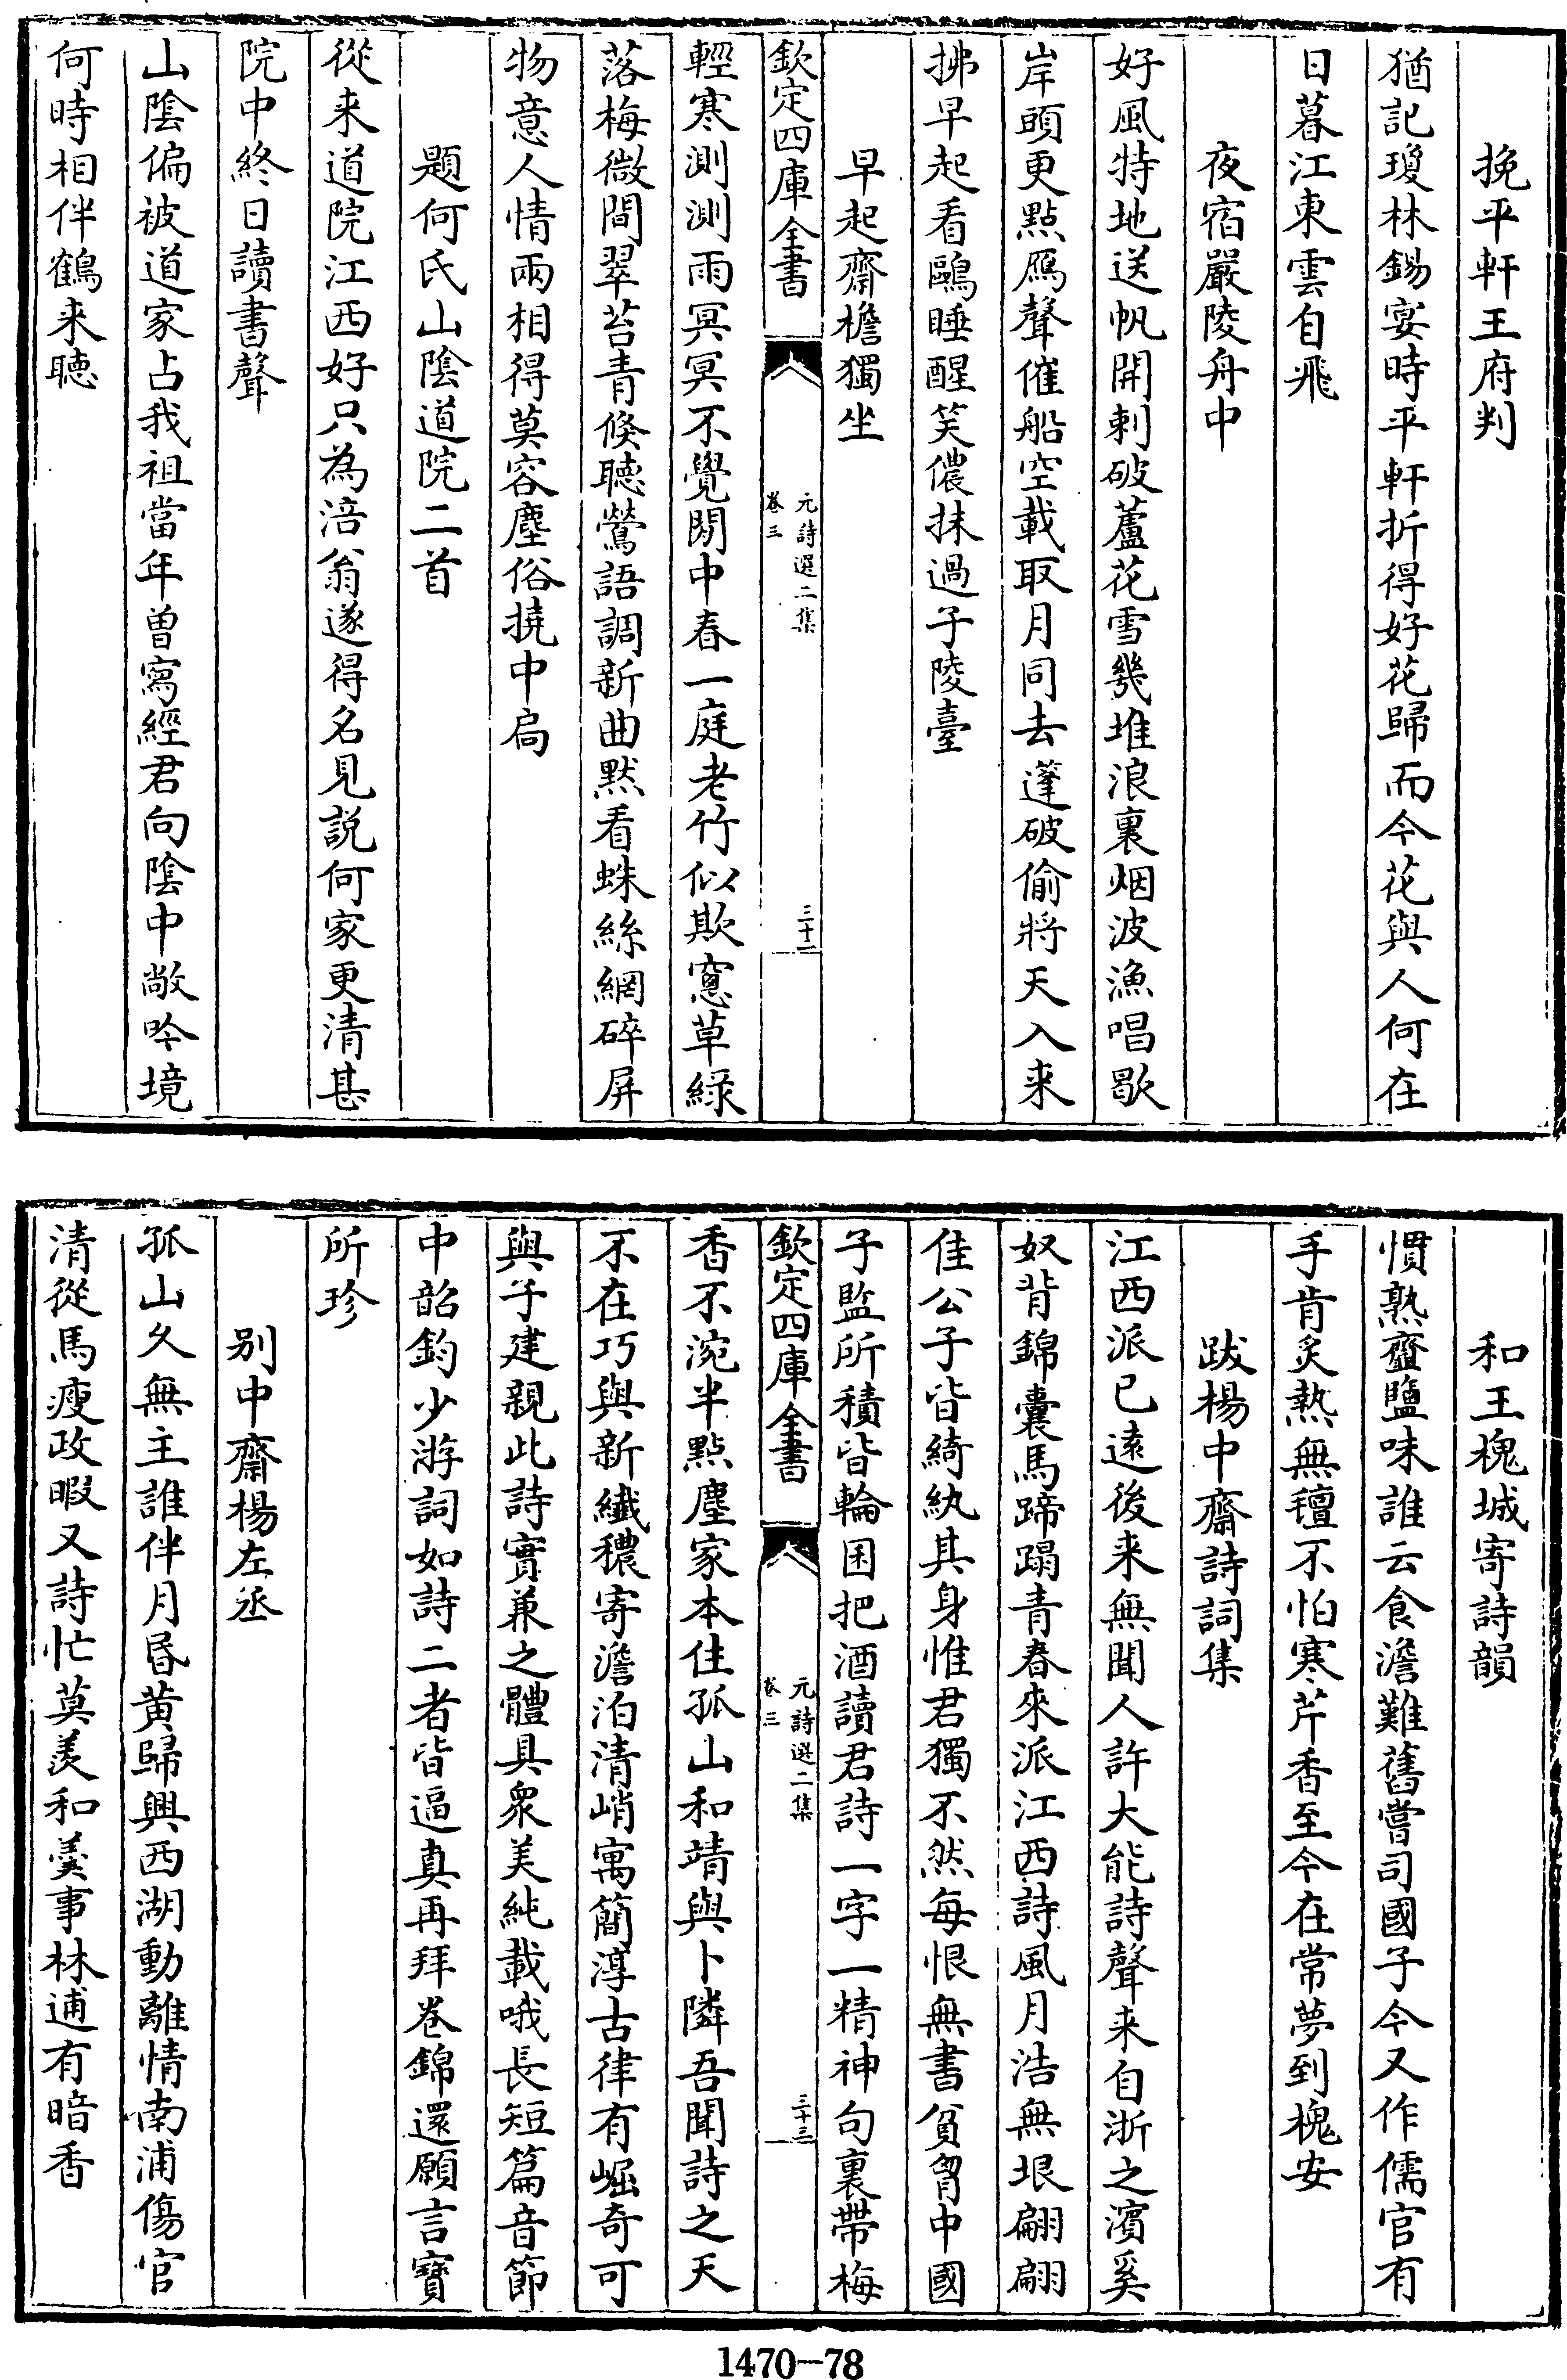 挽平軒王府判
猶記瓊林錫宴時平軒折得好花歸而今花與人何在
日暮江東雲自飛
夜宿嚴陵舟中
好風特地送帆開剌破蘆花雪幾堆浪裏烟波漁唱歇
岸頭更點鴈聲催船空載取月同去蓬破偷將天入来
拂早起看鷗睡醒笑儂抹過子陵臺
早起齋檐獨坐
欽定四庫全書
元詩選二集
卷三
三十二
輕寒測測雨冥冥不覺閒中春一庭老竹似欺窻草緑
落梅微間翠苔青倐聴鶯語調新曲黙看蛛絲網碎屏
物意人情兩相得莫容塵俗撓中扄
題何氏山陰道院二首
從来道院江西好只為涪翁遂得名見説何家更清甚
院中終日讀書聲
山陰偏被道家占我祖當年曽寫經君向陰中敞吟境
何時相伴鶴来聴
和王槐城寄詩韻
慣熟虀鹽味誰云食澹難舊嘗司國子今又作儒官有
手肯炙熱無氊不怕寒芹香至今在常夢到槐安
跋楊中齋詩詞集
江西派已遠後来無聞人許大能詩聲来自浙之濱奚
奴背錦囊馬蹄蹋青春來派江西詩風月浩無垠翩翩
佳公子皆綺紈其身惟君獨不然每恨無書貧胷中國
子監所積皆輪囷把酒讀君詩一字一精神句裏帶梅
欽定四庫全書
元詩選二集
卷三
三十三
香不涴半點塵家本住孤山和靖與卜隣吾聞詩之天
不在巧與新纎穠寄澹泊清峭寓簡淳古律有崛奇可
與子建親此詩實兼之體具衆美純載哦長短篇音節
中韶鈞少游詞如詩二者皆逼真再拜巻錦還願言寳
所珍
别中齋楊左丞
孤山久無主誰伴月昏黄歸興西湖動離情南浦傷官
清從馬瘦政暇又詩忙莫羡和羮事林逋有暗香
1470－78